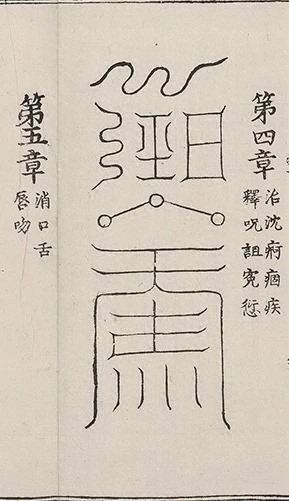 第四章
治沈痾痼疾
釋呪詛寃愆
第五章
消口舌
唇吻